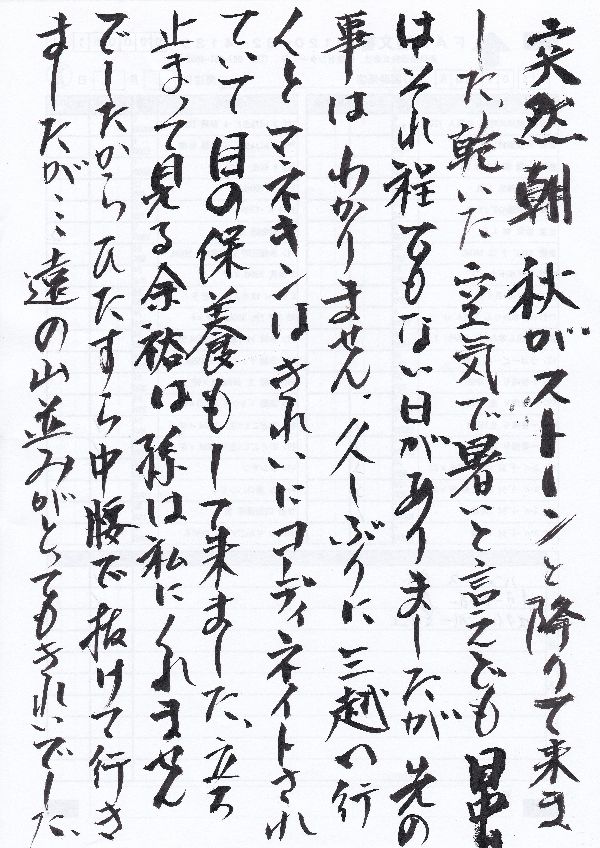 突然朝 秋がストーンと降りて来ま
した、乾いた空気で暑いと言えども日中
はそれ程でもない日がありましたが先の
事はわかりません、久しぶりに三越へ行
くとマネキンはきれいにコーディネイトされ
てて目の保養もして来ました、立ち
止まって見る余裕は孫は私にくれません
でしたからひたすら中腰で抜けて行き
ましたが…遠の山並みがとってもきれいでした、